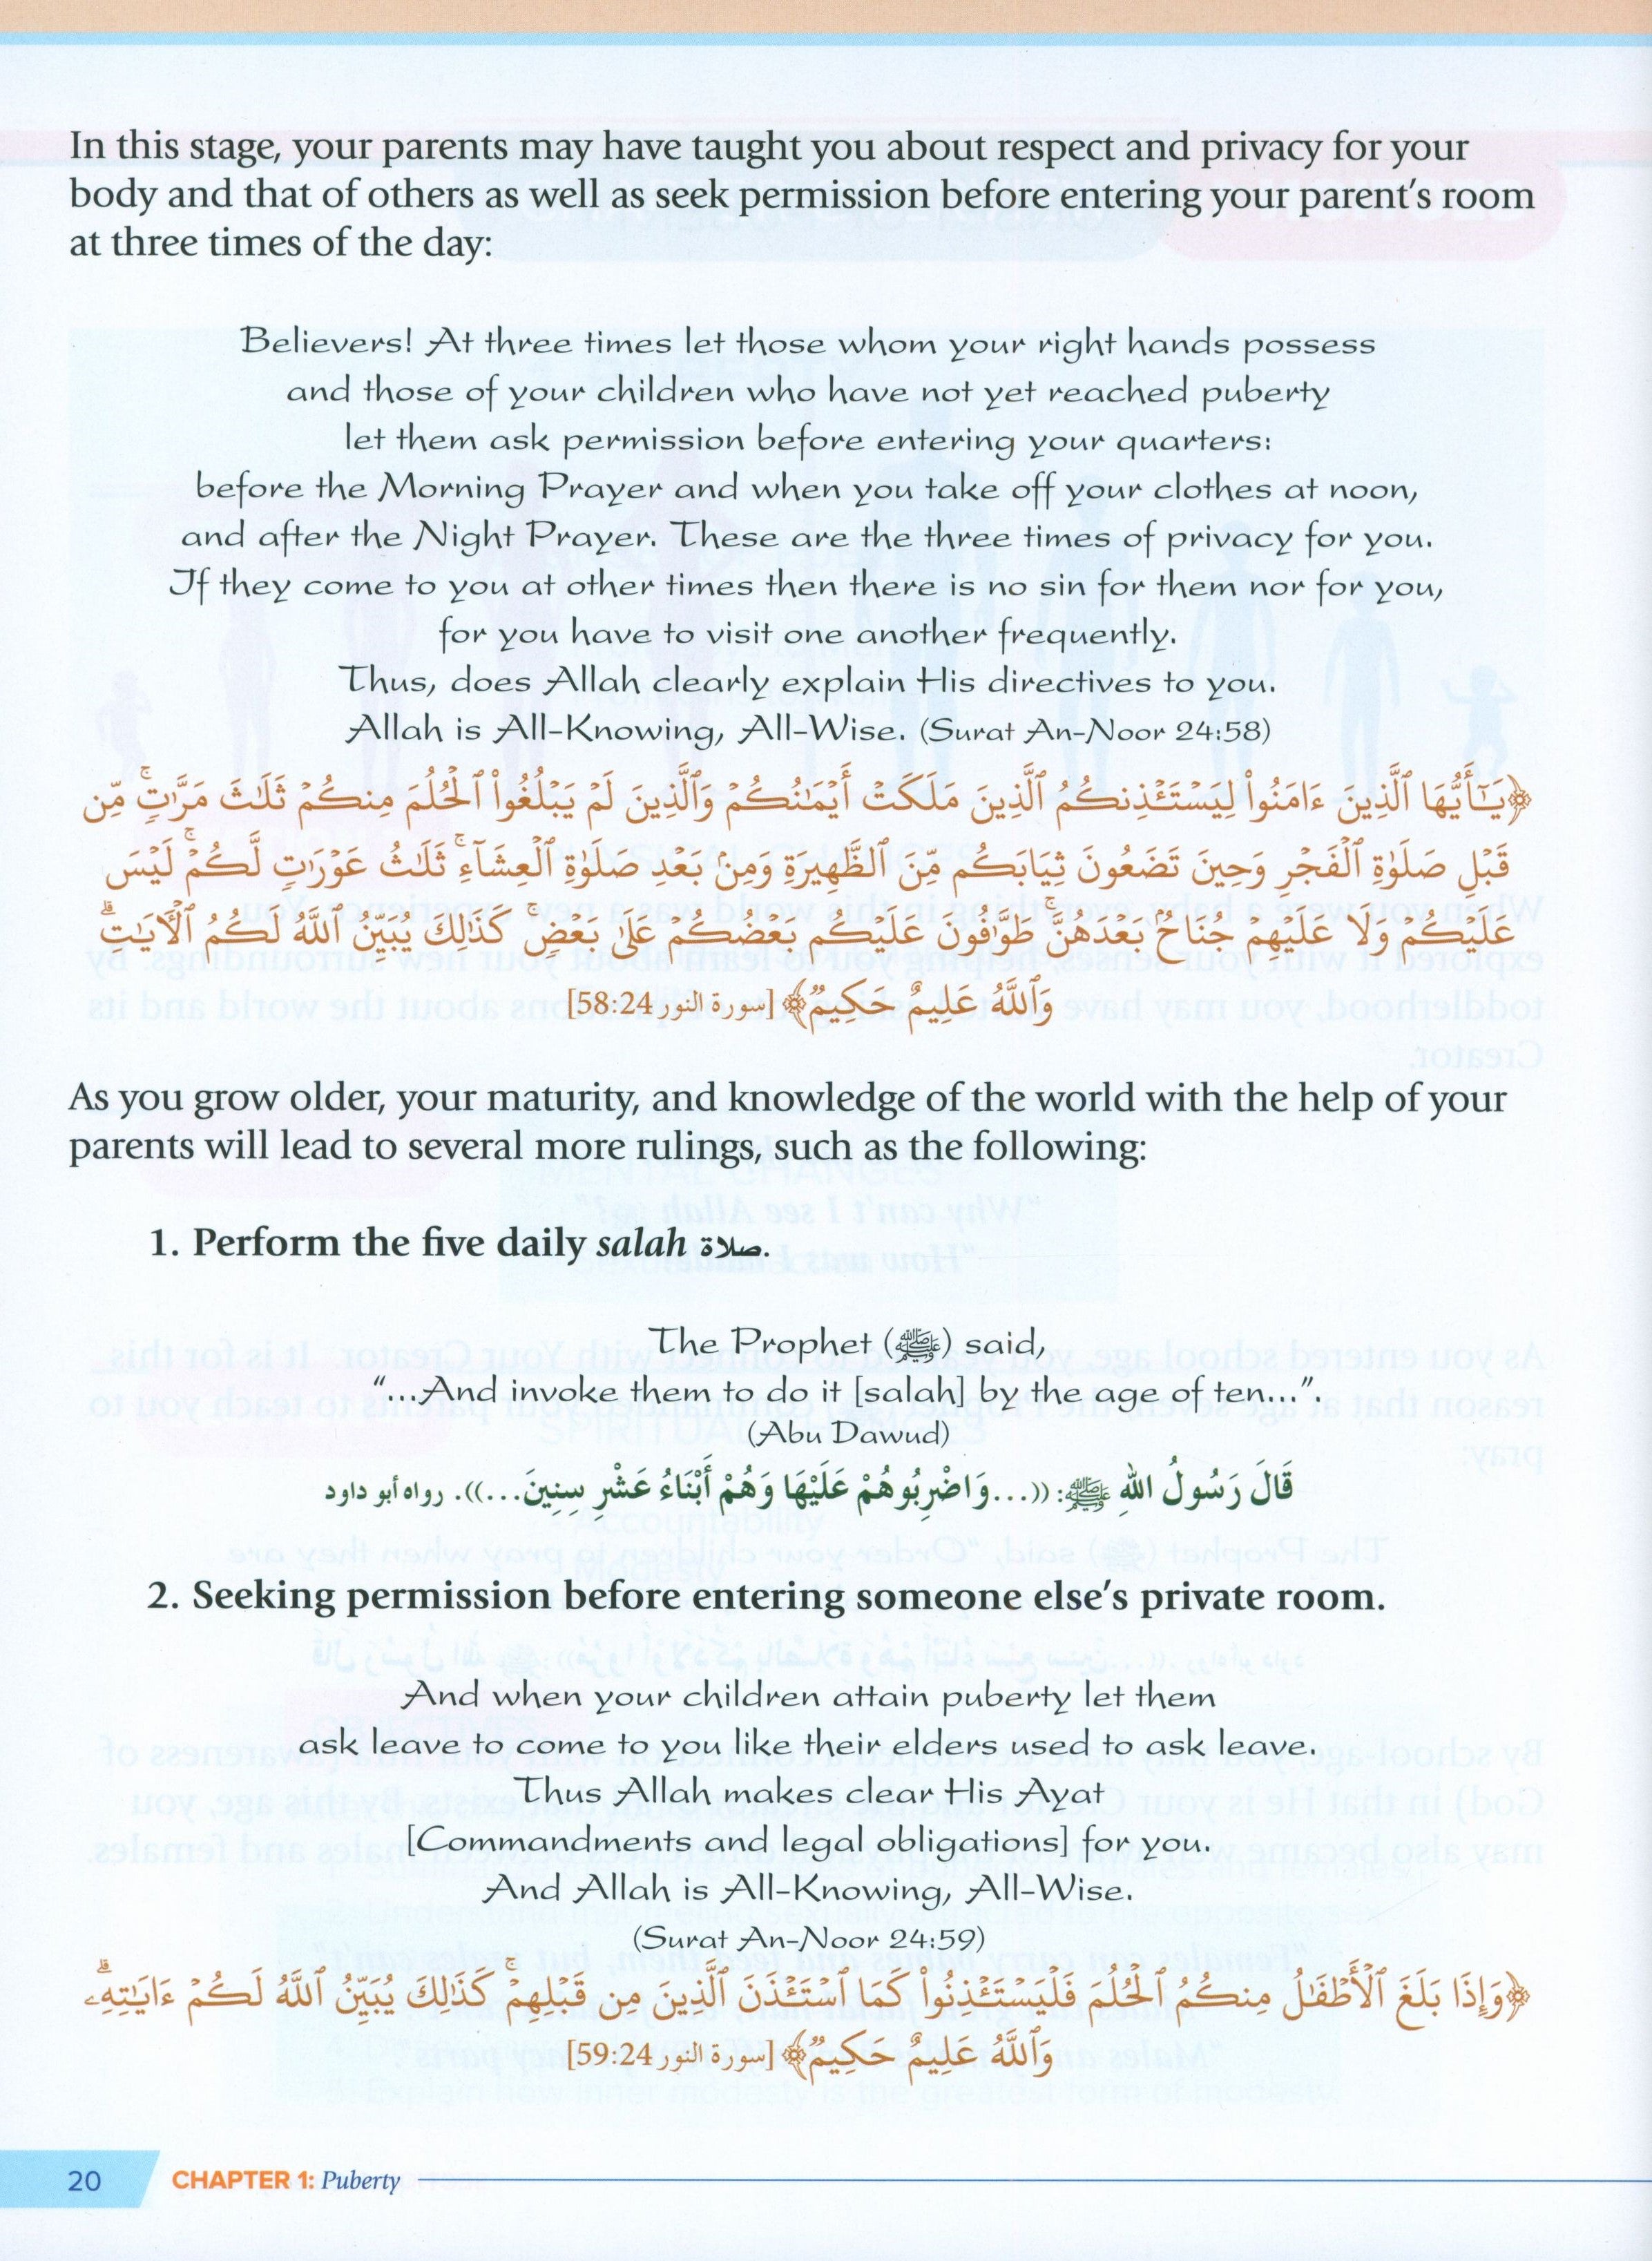 In this stage, your parents may have taught you about respect and privacy for your
body and that of others as well as seek permission before entering your parent's room
at three times of the day:
Believers! At three times let those whom your right hands possess
and those of your children who have not yet reached puberty
let them ask permission before entering your quarters:
before the Morning Prayer and when you take off your clothes at noon,
and after the Night Prayer. These are the three times of privacy for you.
If they come to you at other times then there is no sin for them nor for you,
for you have to visit one another frequently.
Thus, does Allah clearly explain His directives to you.
Allah is All-Knowing, All-Wise. (Surat An-Noor 24:58)
﴿يَـٰٓأَيُّهَا ٱلَّذِينَ ءَامَنُوا۟ لِيَسْتَـْٔذِنكُمُ ٱلَّذِينَ مَلَكَتْ أَيْمَـٰنُكُمْ وَٱلَّذِينَ لَمْ يَبْلُغُوا۟ ٱلْحُلُمَ مِنكُمْ ثَلَـٰثَ مَرَّٰتٍۢ ۚ مِّن
قَبْلِ صَلَوٰةِ ٱلْفَجْرِ وَحِينَ تَضَعُونَ ثِيَابَكُم مِّنَ ٱلظَّهِيرَةِ وَمِنۢ بَعْدِ صَلَوٰةِ ٱلْعِشَآءِ ۚ ثَلَـٰثُ عَوْرَٰتٍۢ لَّكُمْ ۚ لَيْسَ
عَلَيْكُمْ وَلَا عَلَيْهِمْ جُنَاحٌۢ بَعْدَهُنَّ ۚ طَوَّٰفُونَ عَلَيْكُم بَعْضُكُمْ عَلَىٰ بَعْضٍۢ ۚ كَذَٰلِكَ يُبَيِّنُ ٱللَّهُ لَكُمُ ٱلْـَٔايَـٰتِ ۗ
وَٱللَّهُ عَلِيمٌ حَكِيمٌۭ﴾ [سورة النور 58:24]
As you grow older, your maturity, and knowledge of the world with the help of your
parents will lead to several more rulings, such as the following:
1. Perform the five daily salah صلاة.
The Prophet (ﷺ) said,
"...And invoke them to do it [salah] by the age of ten...".
(Abu Dawud)
قَالَ رَسُولُ اللهِ ﷺ: ((...وَاضْرِبُوهُمْ عَلَيْهَا وَهُمْ أَبْنَاءُ عَشْرِ سِنِينَ...)). رواه أبو داود
2. Seeking permission before entering someone else's private room.
And when your children attain puberty let them
ask leave to come to you like their elders used to ask leave.
Thus Allah makes clear His Ayat
[Commandments and legal obligations] for you.
And Allah is All-Knowing, All-Wise.
(Surat An-Noor 24:59)
﴿وَإِذَا بَلَغَ ٱلْأَطْفَـٰلُ مِنكُمُ ٱلْحُلُمَ فَلْيَسْتَـْٔذِنُوا۟ كَمَا ٱسْتَـْٔذَنَ ٱلَّذِينَ مِن قَبْلِهِمْ ۚ كَذَٰلِكَ يُبَيِّنُ ٱللَّهُ لَكُمْ ءَايَـٰتِهِۦ ۗ
وَٱللَّهُ عَلِيمٌ حَكِيمٌۭ﴾ [سورة النور 59:24]
20 CHAPTER 1: Puberty